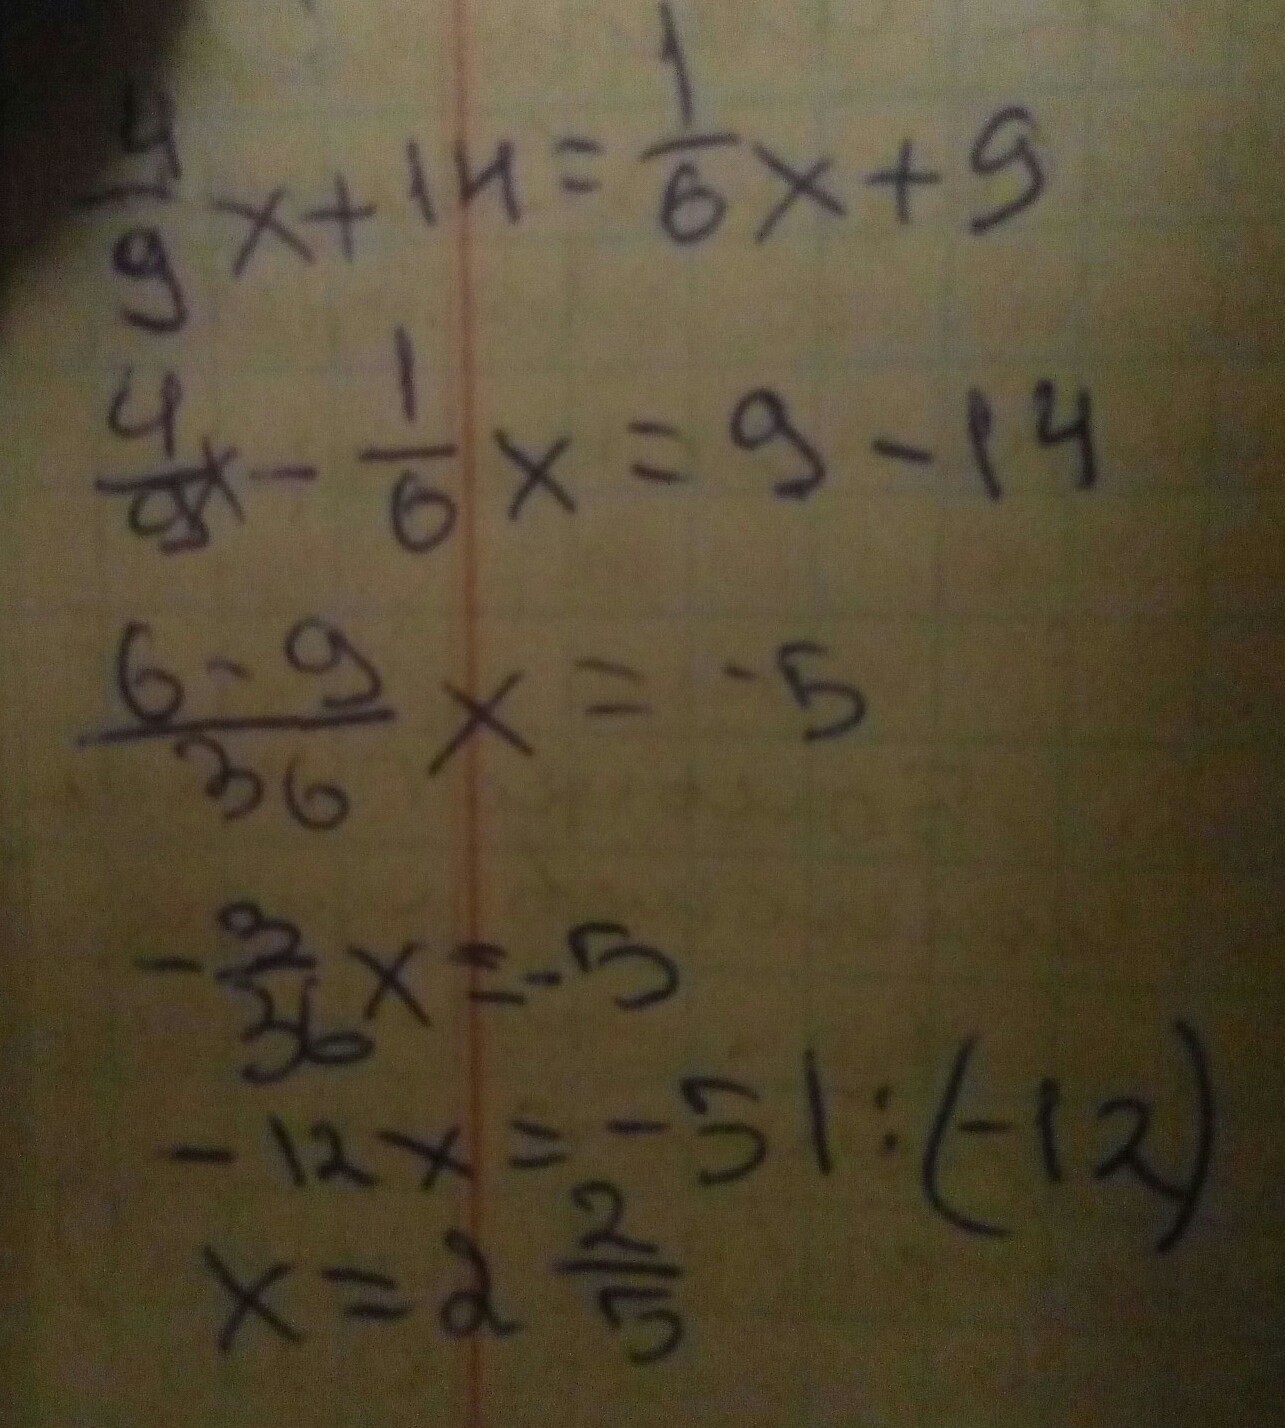 4/9 x + 14 = 1/6 x + 9
4/9 x - 1/6 x = 9 - 14
6 - 9/36 x = -5
- 3/36 x = -5
- 12 x = -5 | : (-12)
x = 2 2/5